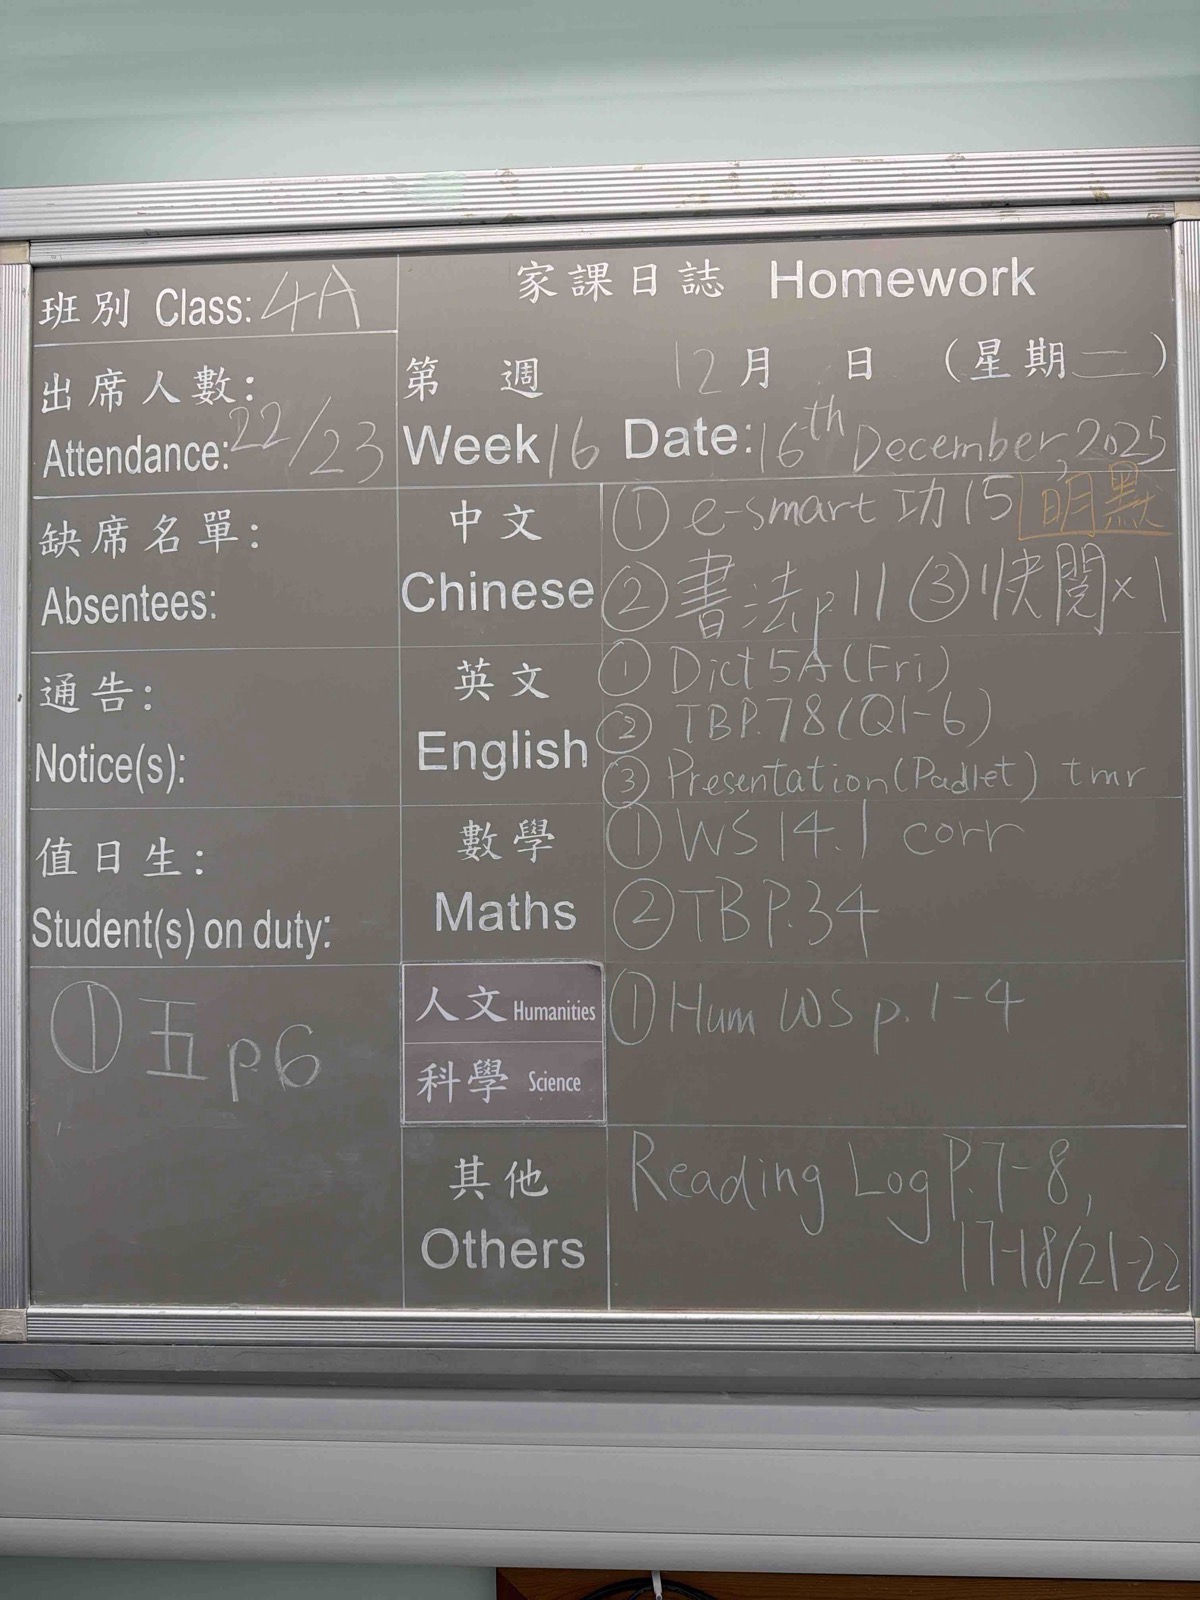 班別 Class: 4A
家課日誌 Homework
出席人數:
Attendance: 22/23
第 週 12月 日 (星期二)
Week 16 Date: 16th December, 2025
缺席名單:
Absentees:
中文
Chinese
① e-smart 功 15 明默
② 書法 p 11 ③ 快閱×1
通告:
Notice(s):
英文
English
① Dict 5A (Fri)
② TB P.78 (Q1-6)
③ Presentation (Padlet) tmr
值日生:
Student(s) on duty:
數學
Maths
① WS 14.1 corr
② TB P.34
① 五 p.6
人文 Humanities
科學 Science
① Hum WS p. 1-4
其他
Others
Reading Log P.7-8,
17-18/21-22